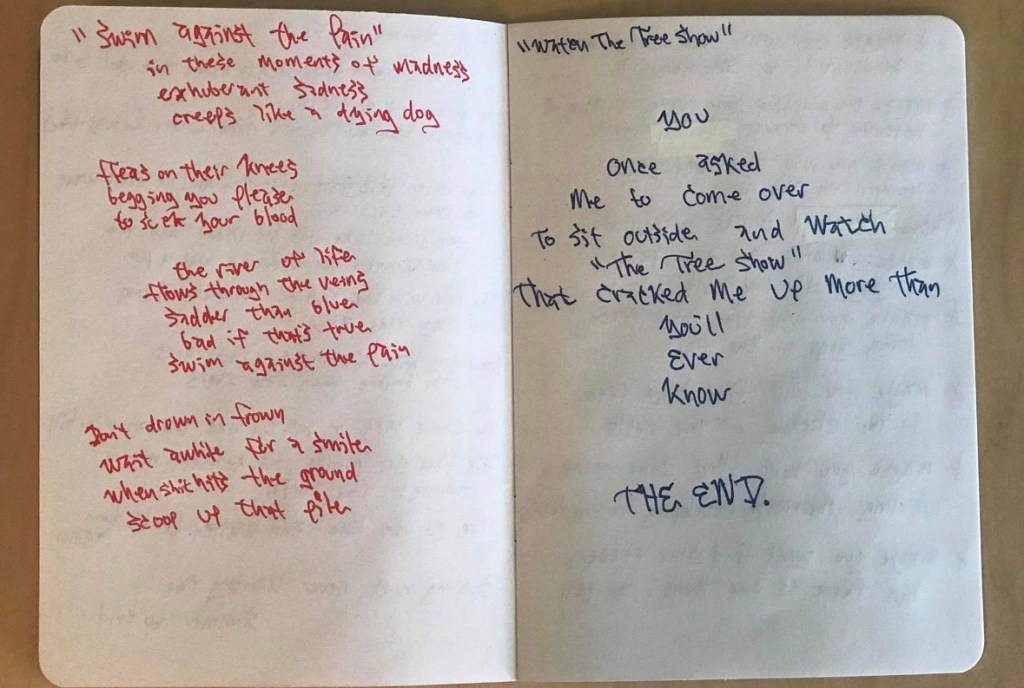 "Swim against the Pain"
in these moments of madness
exhuberant sadness
creeps like a dying dog
fleas on their knees
begging you please
to suck your blood
the river of life
flows through the veins
sadder than blue
bad if that's true
swim against the pain
Don't drown in frown
wait awhile for a smile
when shit hits the ground
scoop up that pile
"Watch The Tree Show"
You
Once asked
Me to come over
To sit outside and Watch
"The Tree Show"
That cracked Me up More Than
You'll
Ever
Know
THE END.